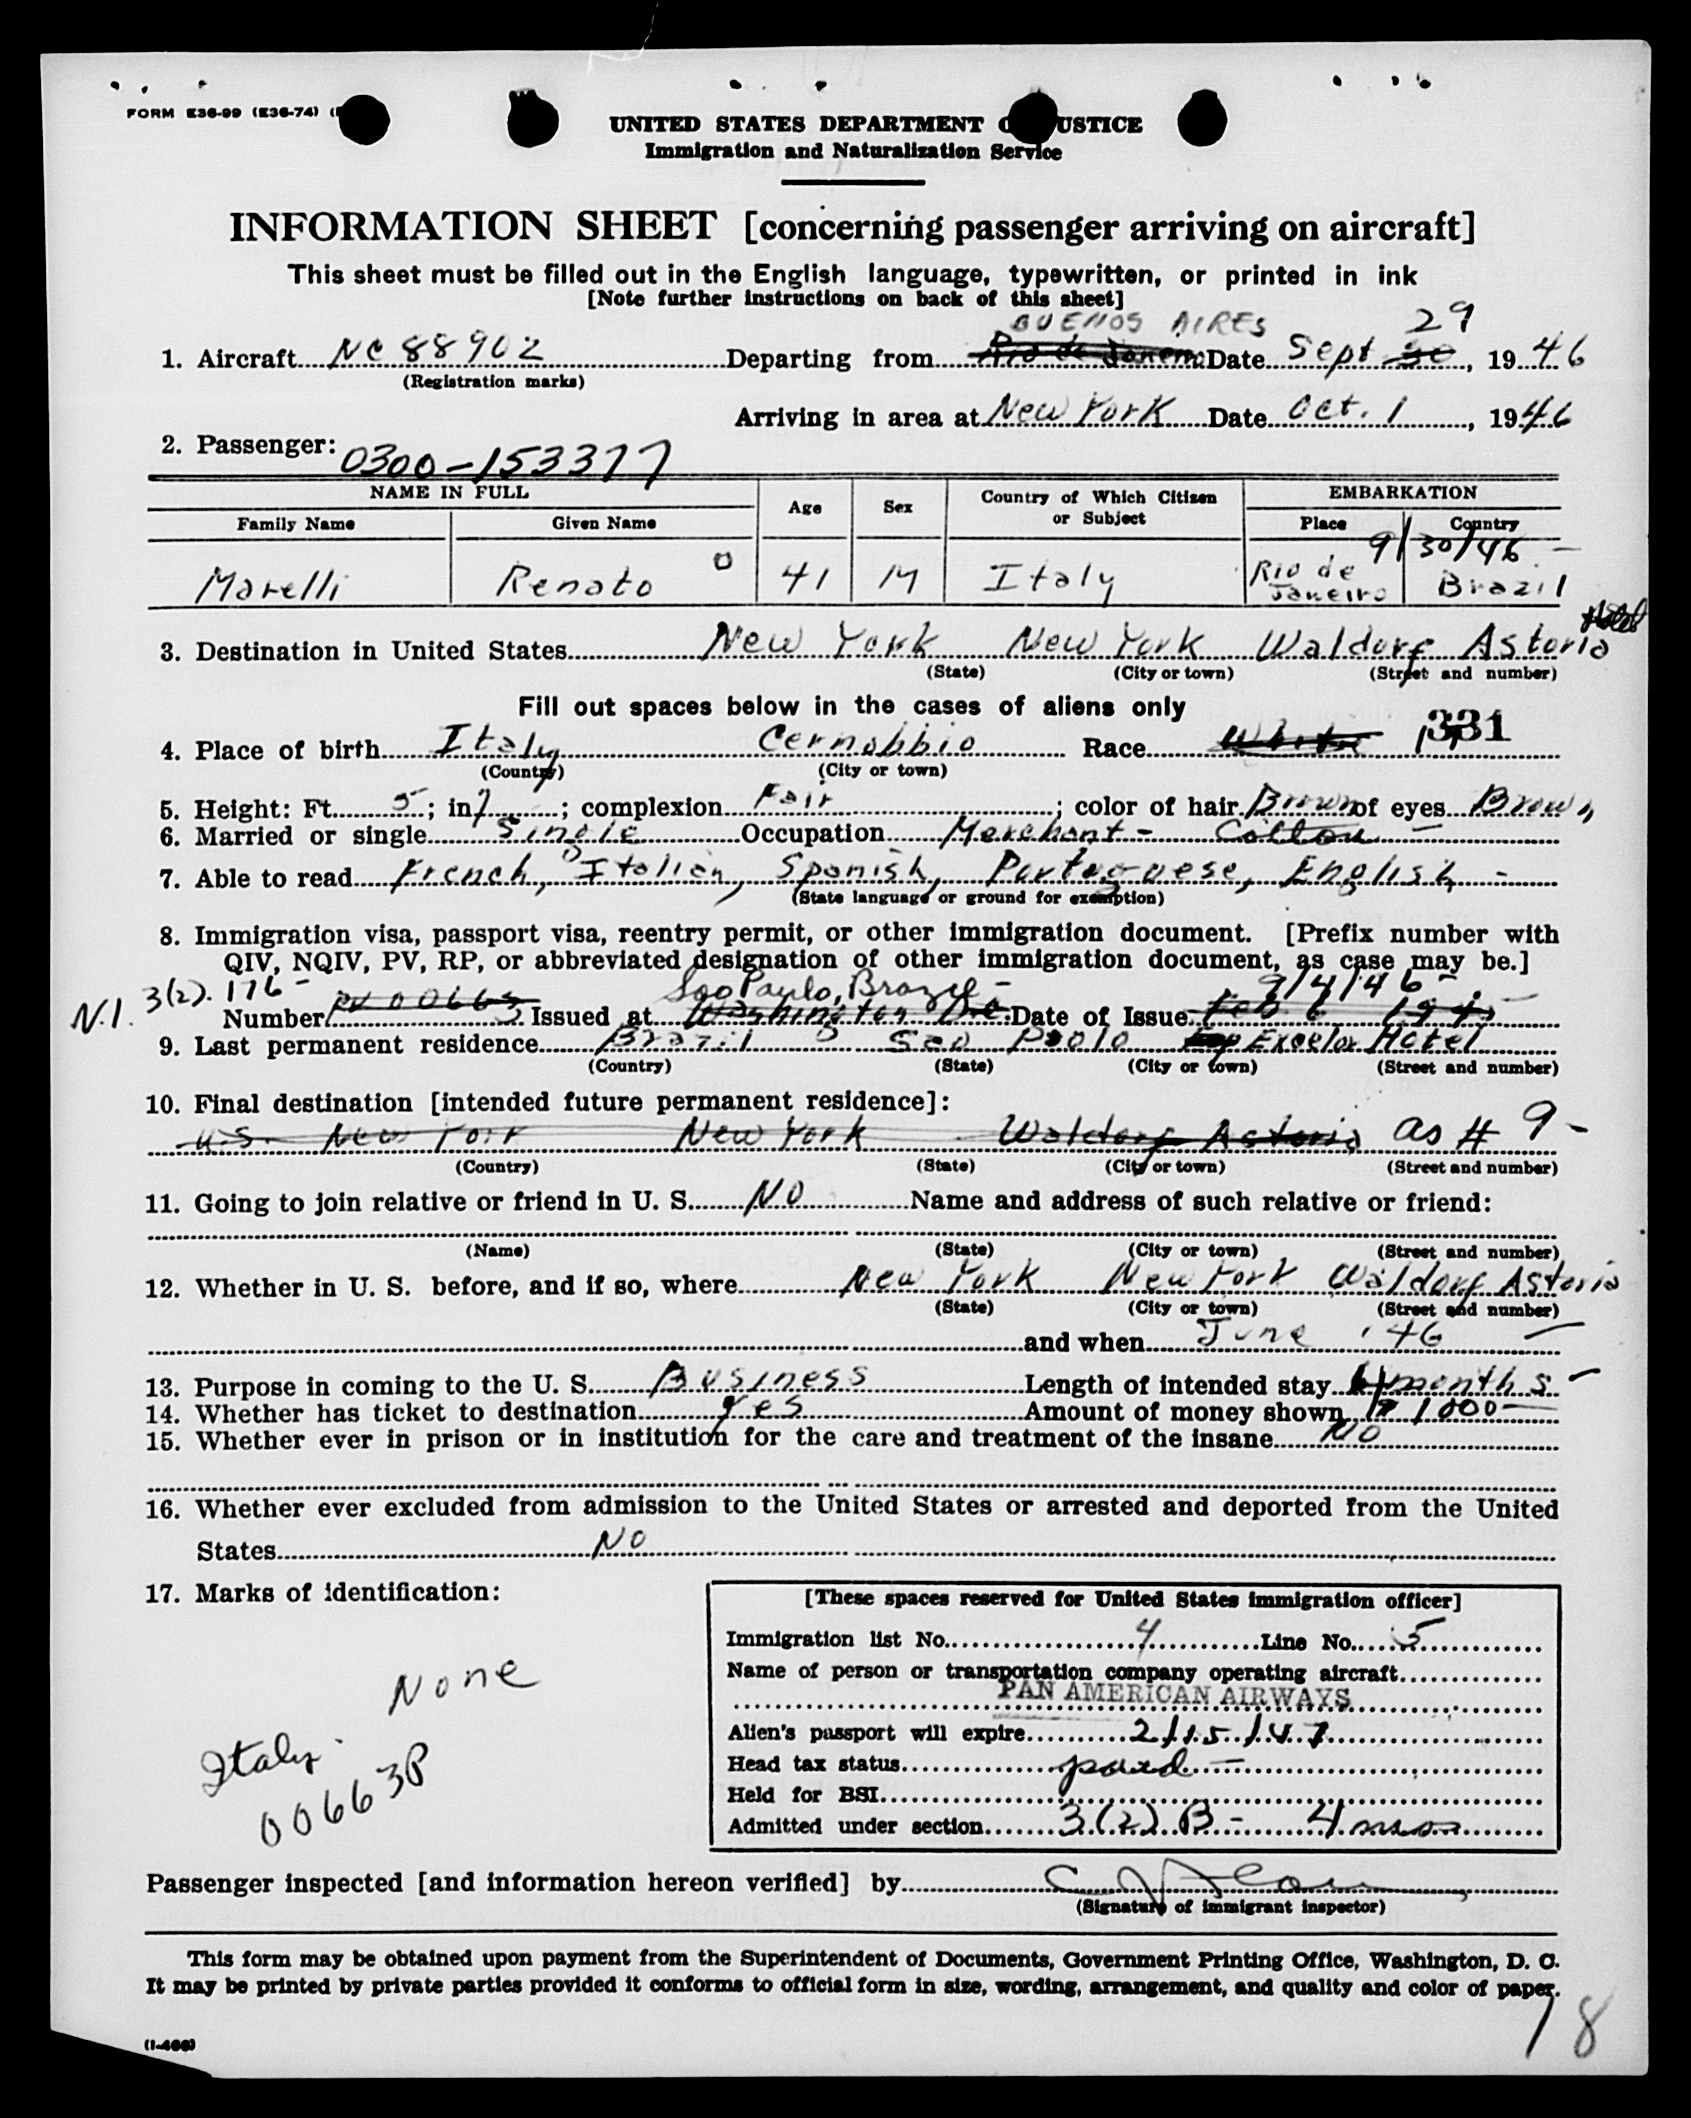 FORM E36-99 (E36-74)
UNITED STATES DEPARTMENT O USTICE
Immigration and Naturalization Service
INFORMATION SHEET [concerning passenger arriving on aircraft]
This sheet must be filled out in the English language, typewritten, or printed in ink
[Note further instructions on back of this sheet]
BUENOS AIRES 29
1. Aircraft NC 88902 Departing from Rio de Janeiro Date Sept 30, 1946
(Registration marks)
Arriving in area at New York Date Oct. 1, 1946
2. Passenger: 0300-153377
NAME IN FULL Age Sex Country of Which Citizen or Subject EMBARKATION
Family Name Given Name Place Country
9/30/46 -
Marelli Renato 41 M Italy Rio de Janeiro Brazil
Hotel
3. Destination in United States New York New York Waldorf Astoria
(State) (City or town) (Street and number)
Fill out spaces below in the cases of aliens only
331
4. Place of birth Italy Cernobbio Race White
(Country) (City or town)
5. Height: Ft. 5; in. 7; complexion Fair; color of hair Brown of eyes Brown
6. Married or single Single Occupation Merchant - Cotton -
7. Able to read French, Italian, Spanish, Portuguese, English -
(State language or ground for exemption)
8. Immigration visa, passport visa, reentry permit, or other immigration document. [Prefix number with
QIV, NQIV, PV, RP, or abbreviated designation of other immigration document, as case may be.]
N.I. 3(2). 176 - Sao Paulo, Brazil - 9/4/46 -
Number PV 00663 Issued at Washington D.C. Date of Issue Feb 6 194
9. Last permanent residence Brazil Sao Paolo Excelsor Hotel
(Country) (State) (City or town) (Street and number)
10. Final destination [intended future permanent residence]:
U.S. New York New York Waldorf Astoria as # 9 -
(Country) (State) (City or town) (Street and number)
11. Going to join relative or friend in U. S. NO Name and address of such relative or friend:
(Name) (State) (City or town) (Street and number)
12. Whether in U. S. before, and if so, where New York New York Waldorf Astoria
(State) (City or town) (Street and number)
and when June '46
13. Purpose in coming to the U. S. Business Length of intended stay 4 months -
14. Whether has ticket to destination yes Amount of money shown $ 1000 -
15. Whether ever in prison or in institution for the care and treatment of the insane NO
16. Whether ever excluded from admission to the United States or arrested and deported from the United
States NO
17. Marks of identification:
None
Italy
00663P
[These spaces reserved for United States immigration officer]
Immigration list No. 4 Line No. 5
Name of person or transportation company operating aircraft
PAN AMERICAN AIRWAYS
Alien's passport will expire 2/15/47
Head tax status paid -
Held for BSI
Admitted under section 3(2) B - 4 mos
Passenger inspected [and information hereon verified] by
(Signature of immigrant inspector)
This form may be obtained upon payment from the Superintendent of Documents, Government Printing Office, Washington, D. C.
It may be printed by private parties provided it conforms to official form in size, wording, arrangement, and quality and color of paper.
18
(I-466)